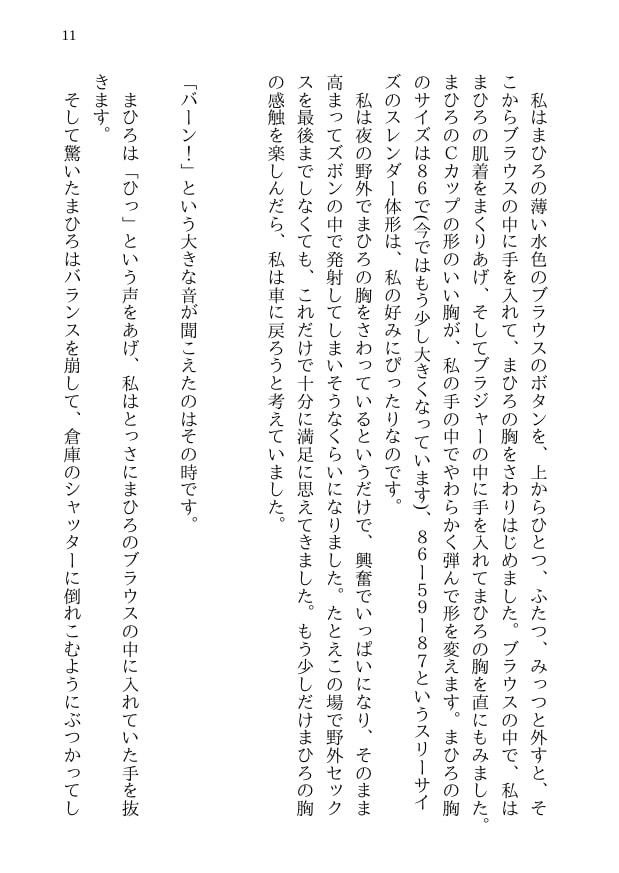 11
私はまひろの薄い水色のブラウスのボタンを、上からひとつ、ふたつ、みっつと外すと、そ
こからブラウスの中に手を入れて、まひろの胸をさわりはじめました。ブラウスの中で、私は
まひろの肌着をまくりあげ、そしてブラジャーの中に手を入れてまひろの胸を直にもみました。
まひろのＣカップの形のいい胸が、私の手の中でやわらかく弾んで形を変えます。まひろの胸
のサイズは８６で(今ではもう少し大きくなっています)、８６ー５９ー８７というスリーサイ
ズのスレンダー体形は、私の好みにぴったりなのです。
私は夜の野外でまひろの胸をさわっているというだけで、興奮でいっぱいになり、そのまま
高まってズボンの中で発射してしまいそうなくらいになりました。たとえこの場で野外セック
スを最後までしなくても、これだけで十分に満足に思えてきました。もう少しだけまひろの胸
の感触を楽しんだら、私は車に戻ろうと考えていました。
「バーン！」という大きな音が聞こえたのはその時です。
まひろは「ひっ」という声をあげ、私はとっさにまひろのブラウスの中に入れていた手を抜
きます。
そして驚いたまひろはバランスを崩して、倉庫のシャッターに倒れこむようにぶつかってし